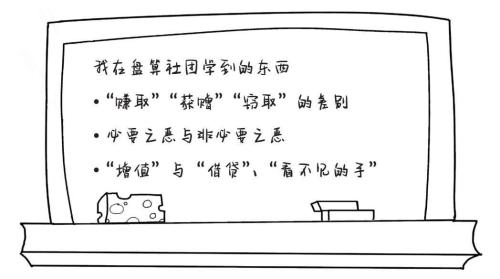 我在盘算社团学到的东西
•“赚取”“获赠”“窃取”的差别
•必要之恶与非必要之恶
•“增值”与“借贷”、“看不见的手”